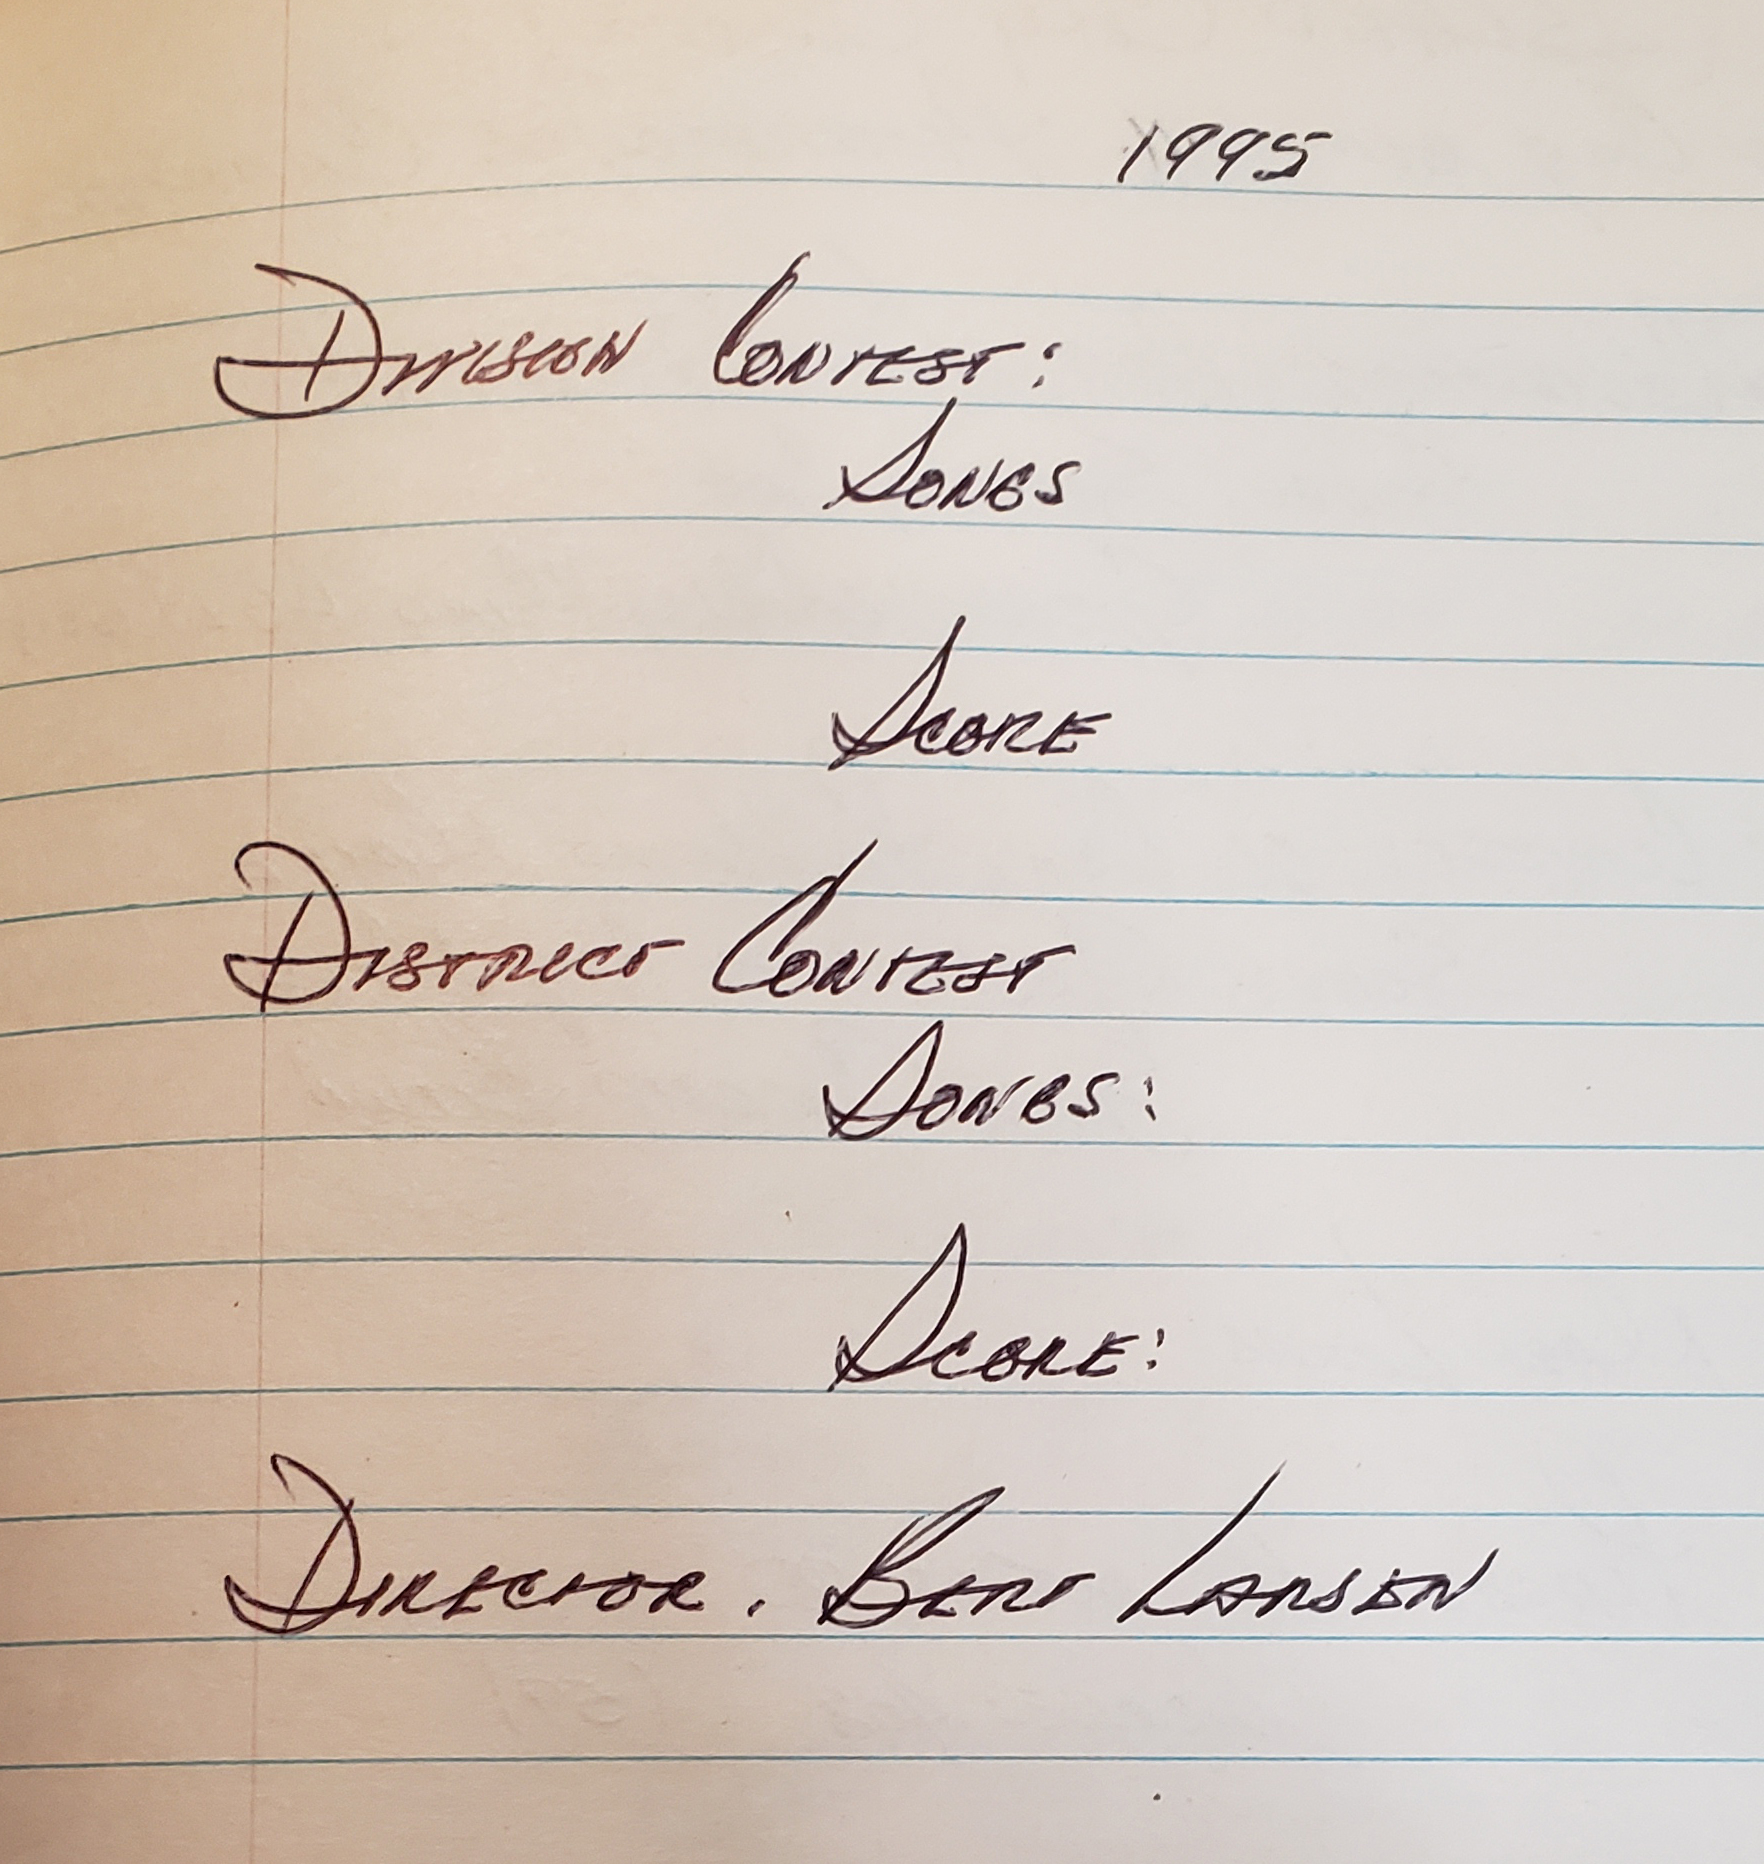 1995
Division Contest:
Songs
Score
District Contest
Songs:
Score:
Director. Bert Larsen